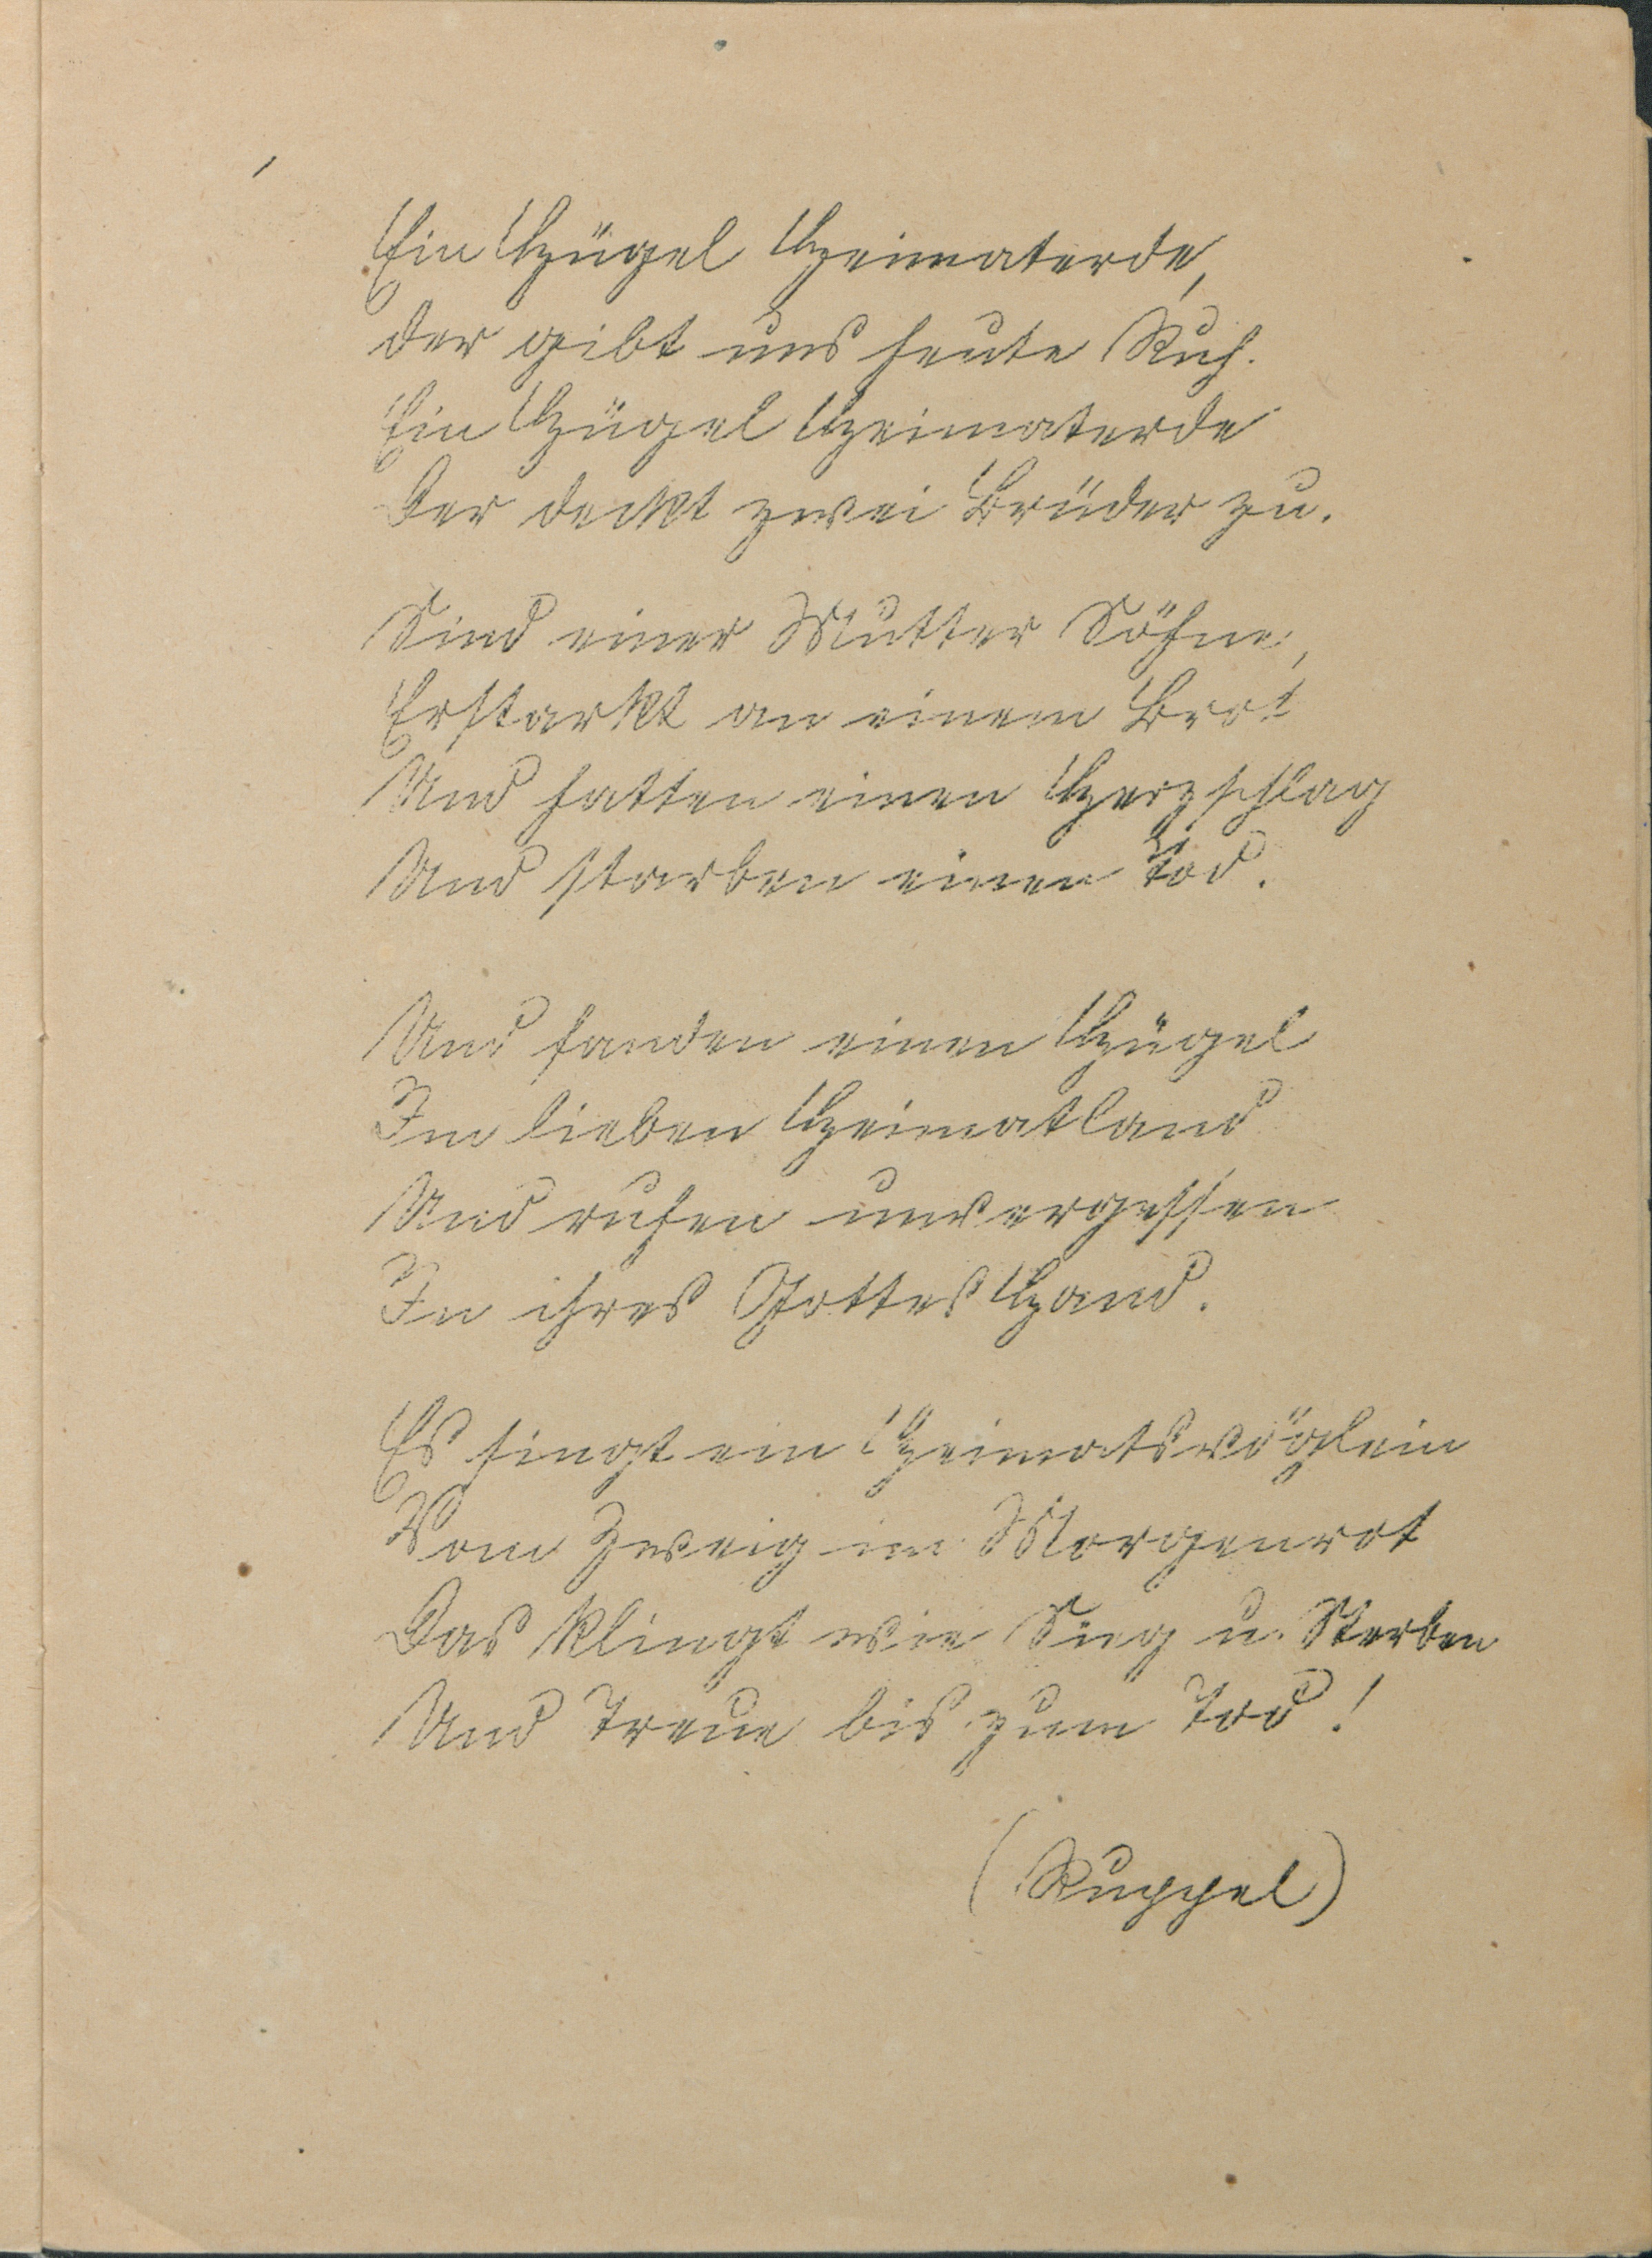 Ein Hügel Heimaterde,
der gibt uns heute Ruh.
Ein Hügel Heimaterde
Der deckt zwei Brüder zu.
Sind einer Mutter Söhne,
Erstarkt an einem Brot
Und hatten einen Herzschlag
Und starben einen Tod.
Und fanden einen Hügel
Im lieben Heimatland
Und ruhen unvergessen
In ihres Gottes Hand.
Es singt ein Heimatsvöglein
Vom Zweig im Morgenrot
Das klingt wie Sieg u. Sterben
Und Treue bis zum Tod!
(Ruppel)